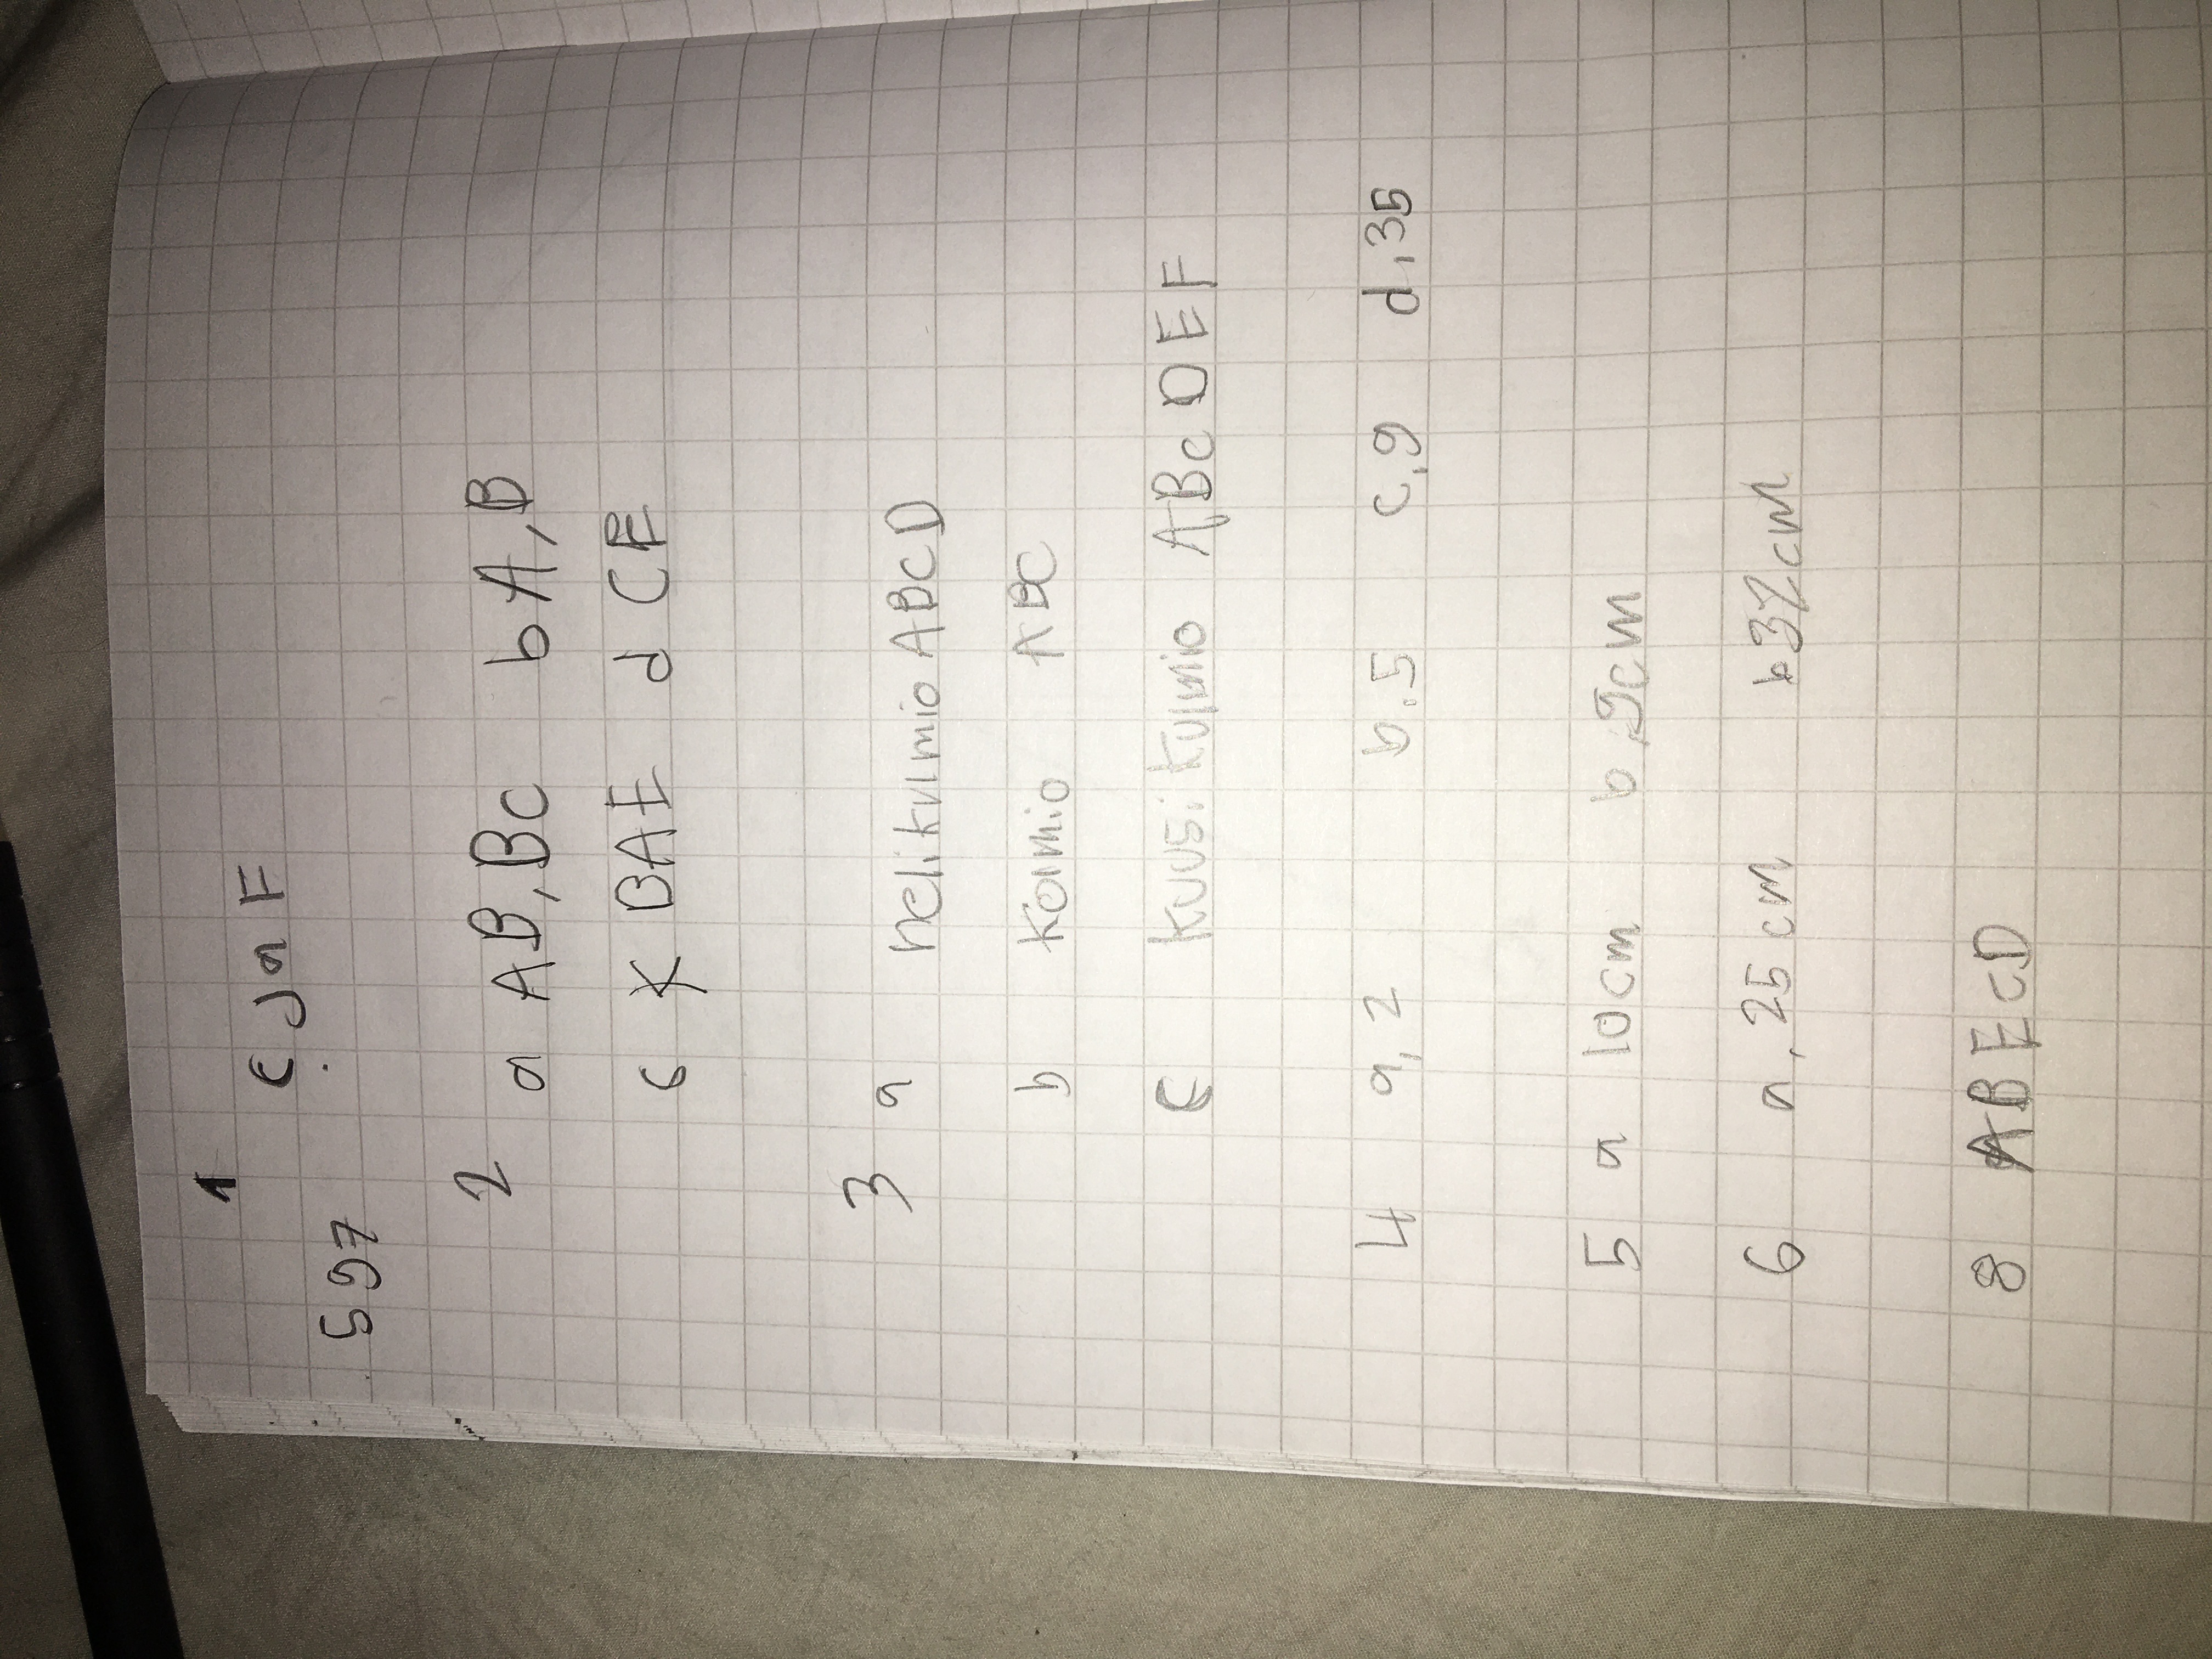 1
C Ja F
S 97
2 a AB, BC b A, B
c BAE d CE
3 a nelikulmio ABCD
b Kolmio ABC
c kuusikulmio ABCDEF
4 a, 2 b. 5 c, 9 d, 35
5 a 10cm b 9cm
6 a, 25 cm b 32cm
8 ABECD